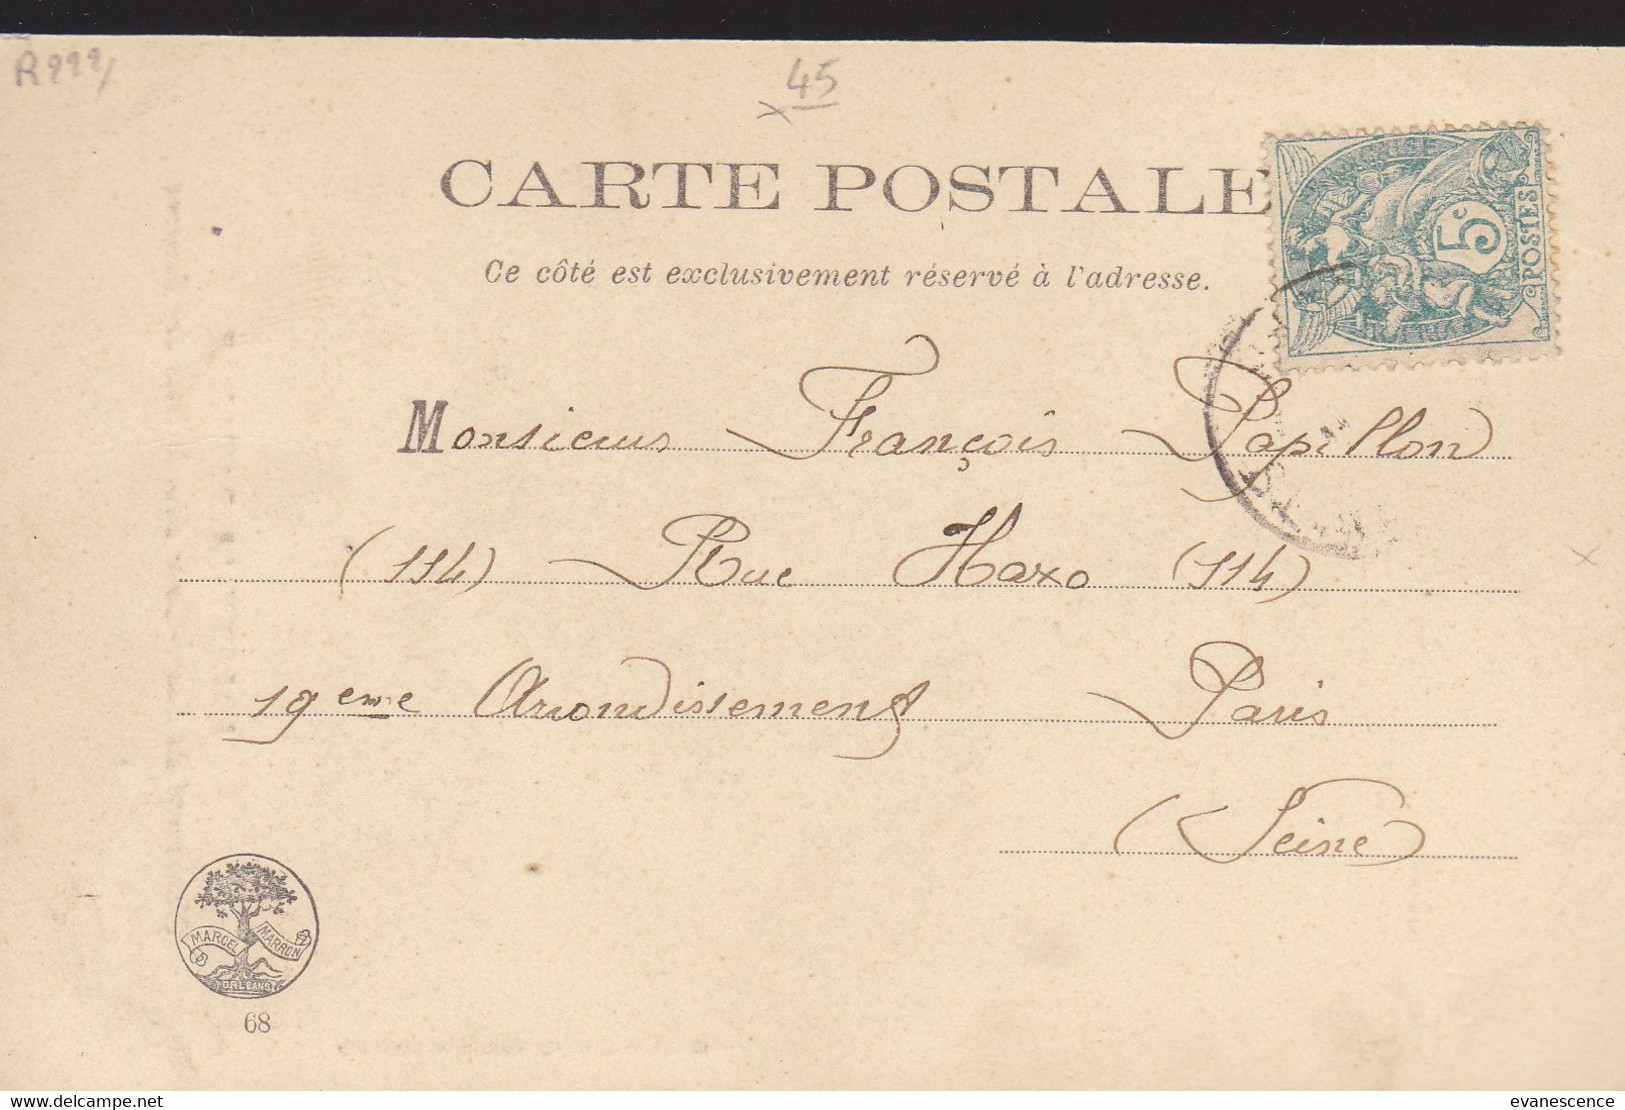 45
CARTE POSTALE
Ce côté est exclusivement réservé à l'adresse.
5c
POSTES
Monsieur François Papillon
(114) Rue Haxo (114)
19eme Arrondissement Paris
(Seine)
MARCEL MARRON
ORLEANS
68
delcampe.net
evanescence